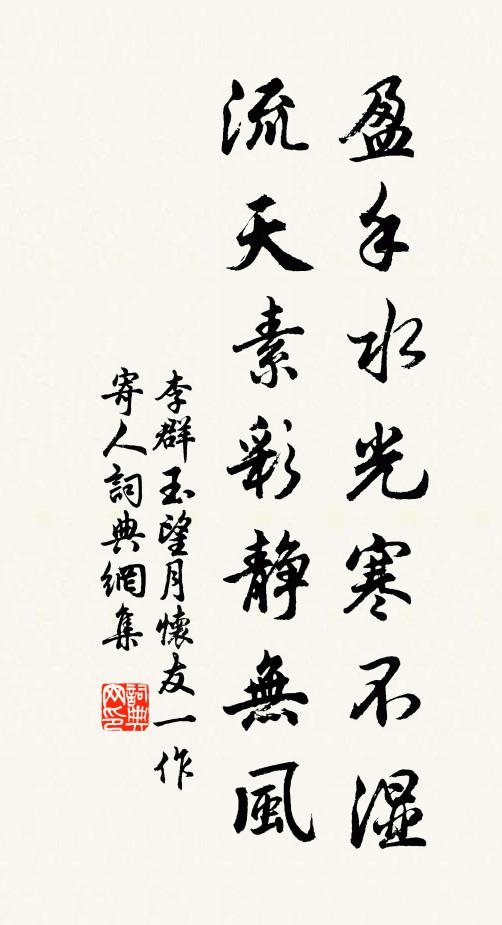 盈手水光寒不湿
流天素彩静無風
李群玉望月懷友一作
寄人詞典網集
詞典
网印